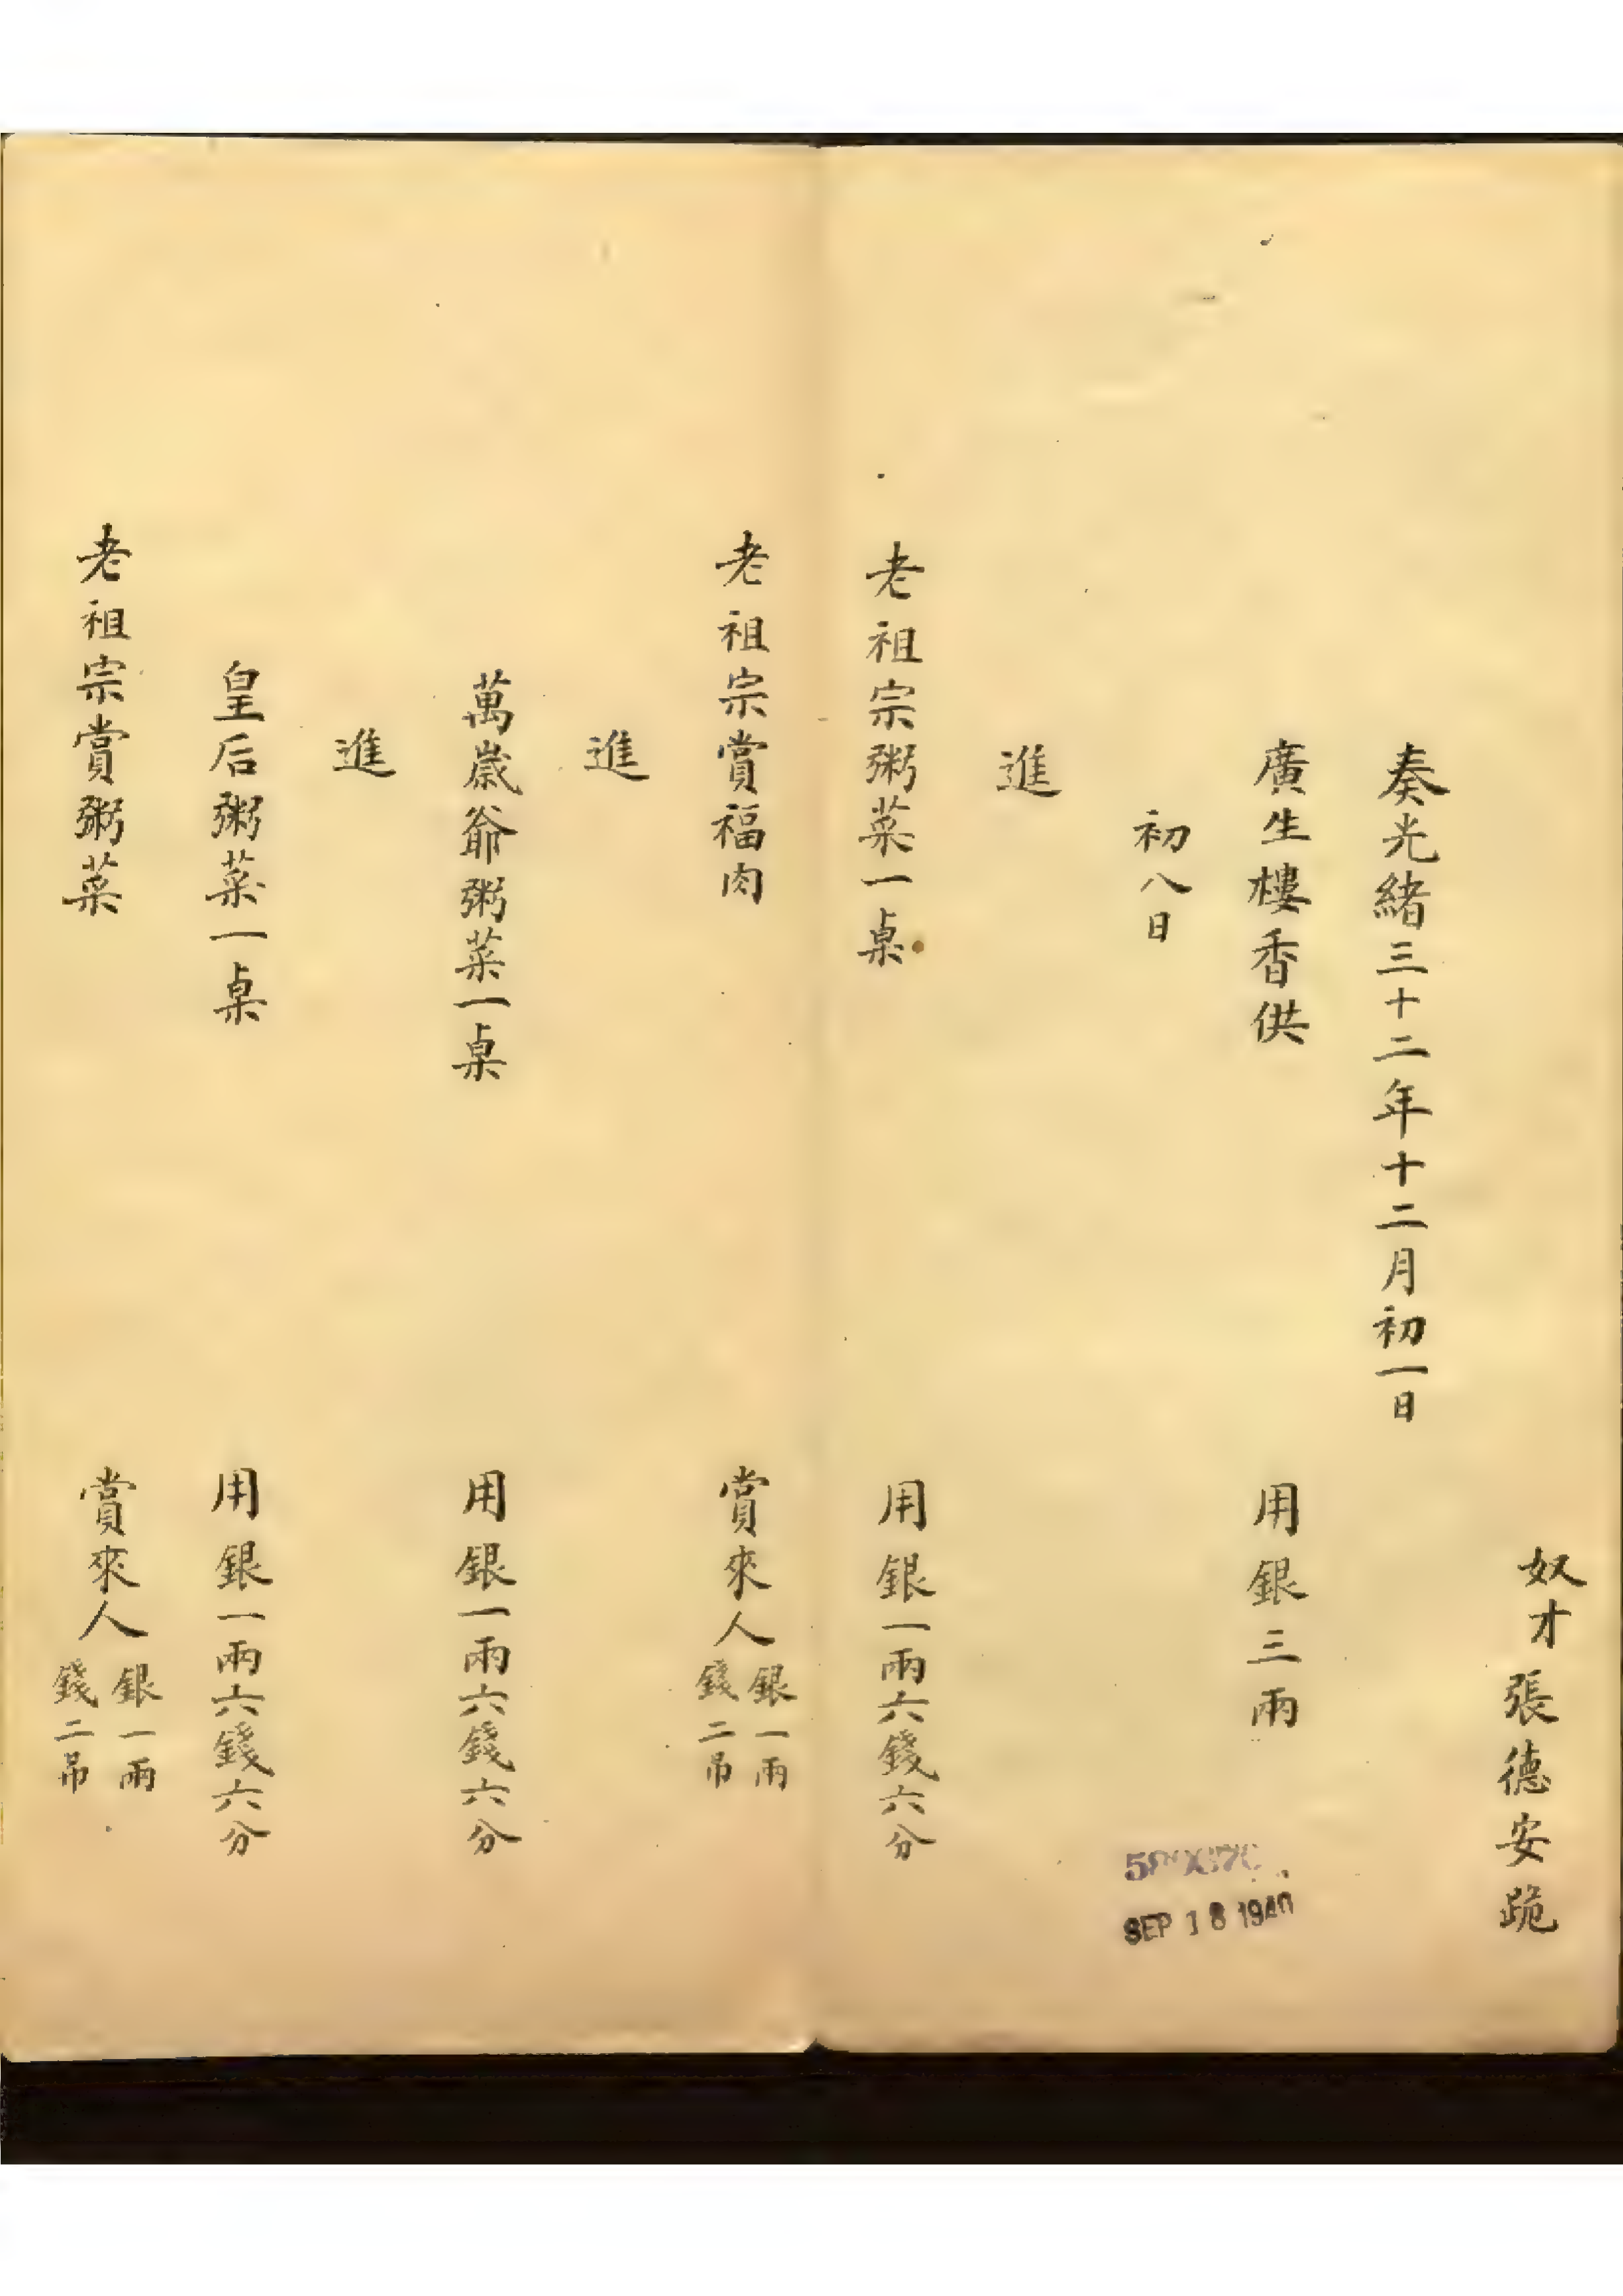 奴才張德安跪
奏光緒三十二年十二月初一日
廣生樓香供 用銀三兩
初八日
進
老祖宗粥菜一桌 用銀一兩六錢六分
老祖宗賞福肉 賞來人 銀一兩 錢二吊
進
萬歲爺粥菜一桌 用銀一兩六錢六分
進
皇后粥菜一桌 用銀一兩六錢六分
老祖宗賞粥菜 賞來人 銀一兩 錢二吊
SEP 18 1940